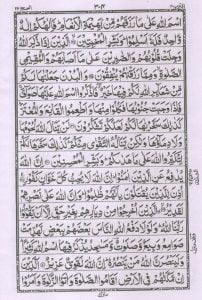 ۳۰۴
اسْمَ اللّٰهِ عَلٰى مَا رَزَقَهُمْ مِّنْۢ بَهِيْمَةِ الْاَنْعَامِؕ فَاِلٰهُكُمْ اِلٰهٌ
وَّاحِدٌ فَلَهٗۤ اَسْلِمُوْاؕ وَبَشِّرِ الْمُخْبِتِيْنَۙ الَّذِيْنَ اِذَا ذُكِرَ اللّٰهُ
وَجِلَتْ قُلُوْبُهُمْ وَالصّٰبِرِيْنَ عَلٰى مَاۤ اَصَابَهُمْ وَالْمُقِيْمِى
الصَّلٰوةِۙ وَمِمَّا رَزَقْنٰهُمْ يُنْفِقُوْنَ وَالْبُدْنَ جَعَلْنٰهَا لَكُمْ
مِّنْ شَعَآئِرِ اللّٰهِ لَكُمْ فِيْهَا خَيْرٌ فَاذْكُرُوا اسْمَ اللّٰهِ عَلَيْهَا
صَوَآفَّ فَاِذَا وَجَبَتْ جُنُوْبُهَا فَكُلُوْا مِنْهَا وَاَطْعِمُوا الْقَانِعَ وَالْمُعْتَرَّ
كَذٰلِكَ سَخَّرْنٰهَا لَكُمْ لَعَلَّكُمْ تَشْكُرُوْنَ لَنْ يَّنَالَ اللّٰهَ لُحُوْمُهَا
وَلَا دِمَآؤُهَا وَلٰكِنْ يَّنَالُهُ التَّقْوٰى مِنْكُمْ كَذٰلِكَ سَخَّرَهَا لَكُمْ
لِتُكَبِّرُوا اللّٰهَ عَلٰى مَا هَدٰىكُمْ وَبَشِّرِ الْمُحْسِنِيْنَ اِنَّ اللّٰهَ
يُدٰفِعُ عَنِ الَّذِيْنَ اٰمَنُوْا اِنَّ اللّٰهَ لَا يُحِبُّ كُلَّ خَوَّانٍ كَفُوْرٍ
اُذِنَ لِلَّذِيْنَ يُقٰتَلُوْنَ بِاَنَّهُمْ ظُلِمُوْا وَاِنَّ اللّٰهَ عَلٰى نَصْرِهِمْ
لَقَدِيْرُ الَّذِيْنَ اُخْرِجُوْا مِنْ دِيَارِهِمْ بِغَيْرِ حَقٍّ اِلَّاۤ اَنْ يَّقُوْلُوْا
رَبُّنَا اللّٰهُ وَلَوْلَا دَفْعُ اللّٰهِ النَّاسَ بَعْضَهُمْ بِبَعْضٍ لَّهُدِّمَتْ
صَوَامِعُ وَبِيَعٌ وَّصَلَوٰتٌ وَّمَسٰجِدُ يُذْكَرُ فِيْهَا اسْمُ اللّٰهِ كَثِيْرًا
وَلَيَنْصُرَنَّ اللّٰهُ مَنْ يَّنْصُرُهٗ اِنَّ اللّٰهَ لَقَوِىٌّ عَزِيْزٌ اَلَّذِيْنَ
اِنْ مَّكَّنّٰهُمْ فِى الْاَرْضِ اَقَامُوا الصَّلٰوةَ وَاٰتَوُا الزَّكٰوةَ وَاَمَرُوْا